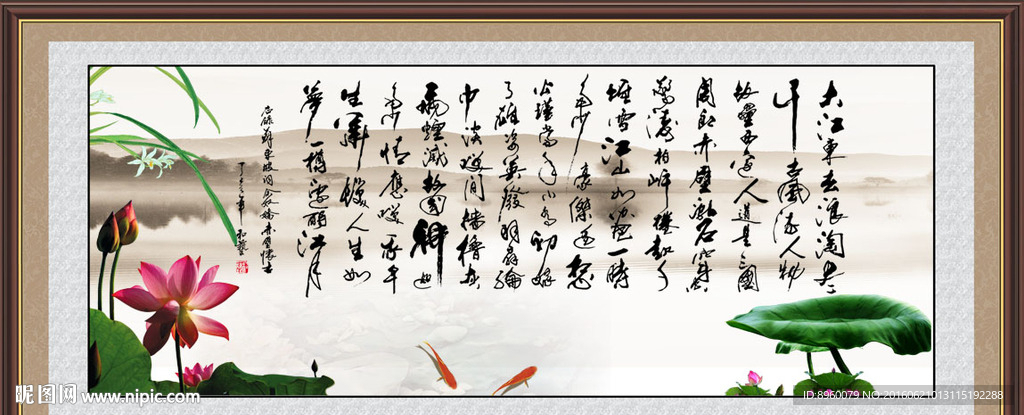 大江東去浪淘尽
千古風流人物
故壘西邊人道是三國
周郎赤壁亂石崩雲
驚濤拍岸捲起千
堆雪江山如画一時
多少豪傑遥想
公瑾當年小喬初嫁
了雄姿英發羽扇綸
巾談笑間檣櫓灰
飛煙滅故國神遊
多情應笑我早
生華髮人生如
夢一樽還酹江月
蘇東坡詞念奴嬌赤壁懷古
昵图网 www.nipic.com
ID:8960079 NO:20160621013115192288